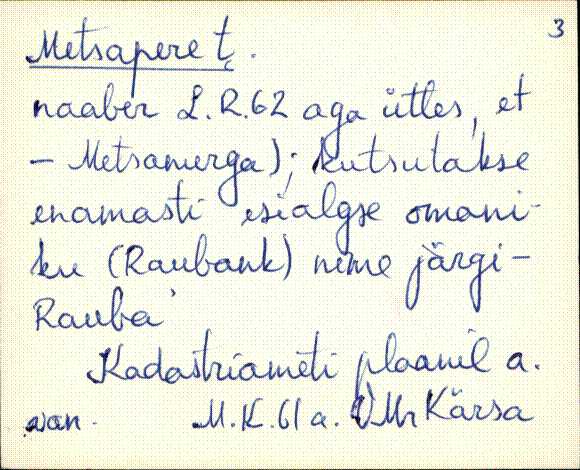 3
Metsapere t.
naaber L.R.62 aga ütles, et
– Metsamerga); kutsutakse
enamasti esialgse omani-
ku (Raubank) nime järgi –
Rauba'
Kadastriameti plaanil a.
M.K.61 a. Kärsa